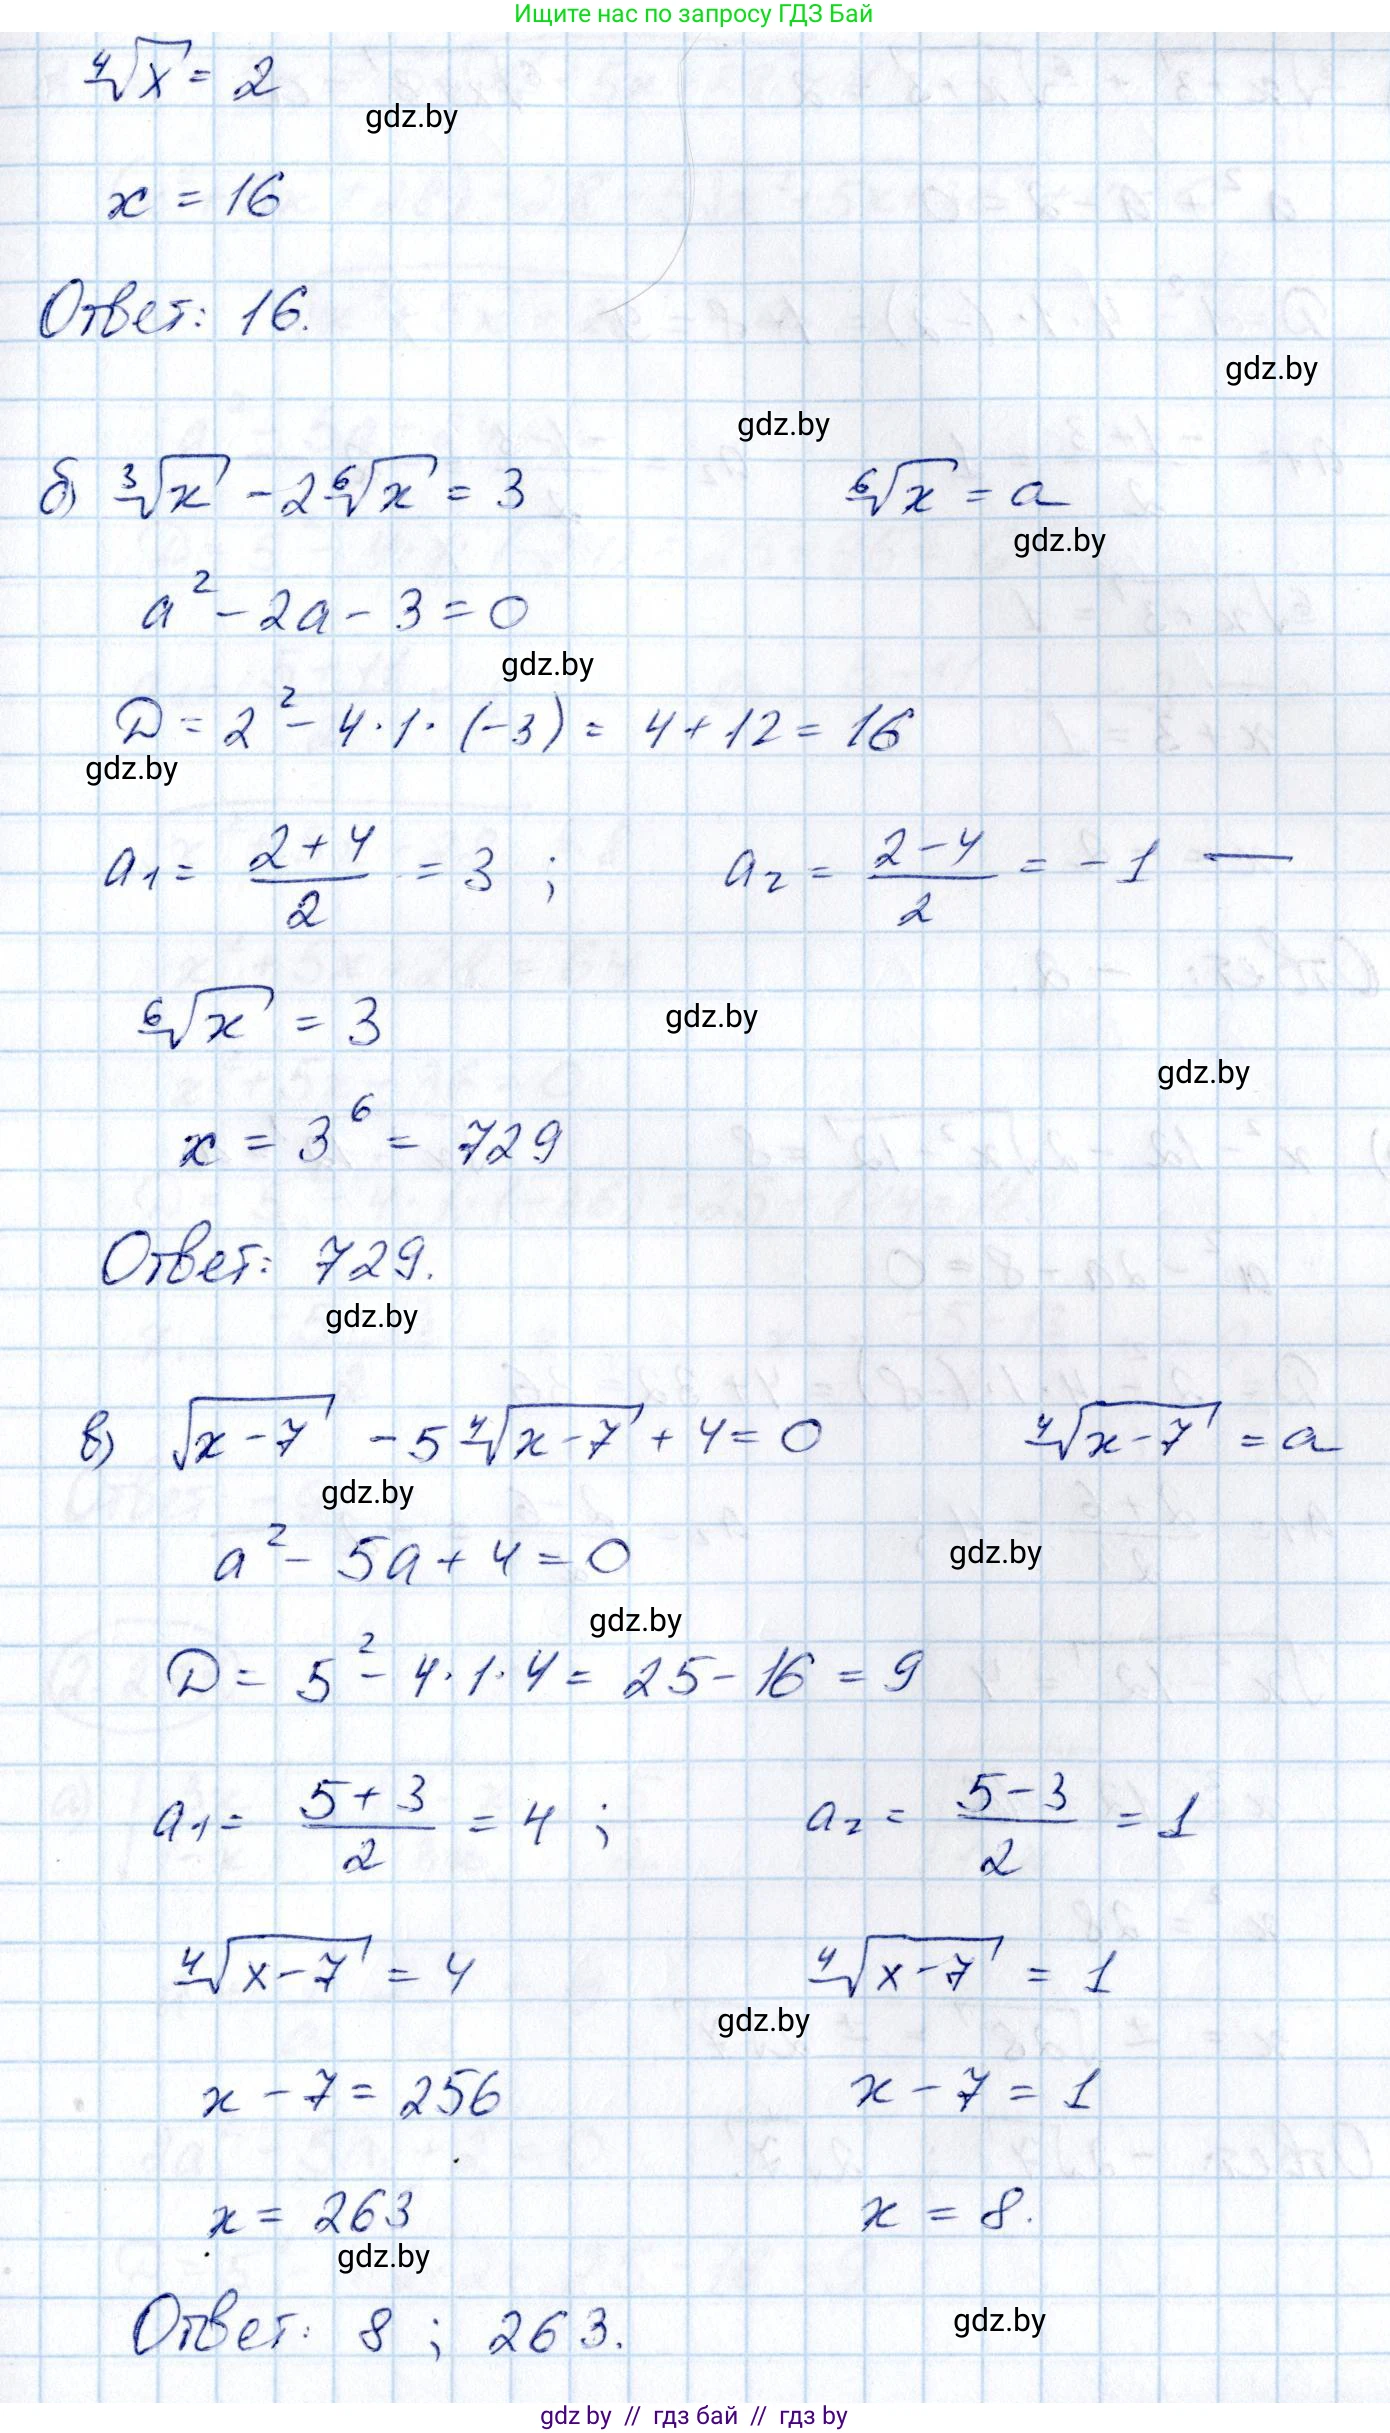 Ищите нас по запросу ГДЗ Бай
⁴√x = 2
gdz.by
x = 16
Ответ: 16.
gdz.by
gdz.by
б) ³√x - 2⁶√x = 3 ⁶√x = a
gdz.by
a² - 2a - 3 = 0
gdz.by
D = 2² - 4·1·(-3) = 4 + 12 = 16
gdz.by
a₁ = (2+4)/2 = 3 ; a₂ = (2-4)/2 = -1 —
⁶√x = 3
gdz.by
gdz.by
x = 3⁶ = 729
Ответ: 729.
gdz.by
в) √(x-7) - 5⁴√(x-7) + 4 = 0 ⁴√(x-7) = a
gdz.by
a² - 5a + 4 = 0
gdz.by
gdz.by
D = 5² - 4·1·4 = 25 - 16 = 9
a₁ = (5+3)/2 = 4 ; a₂ = (5-3)/2 = 1
⁴√(x-7) = 4 ⁴√(x-7) = 1
gdz.by
x - 7 = 256 x - 7 = 1
x = 263 x = 8.
gdz.by
Ответ: 8 ; 263.
gdz.by
gdz by // гдз бай // gdz by